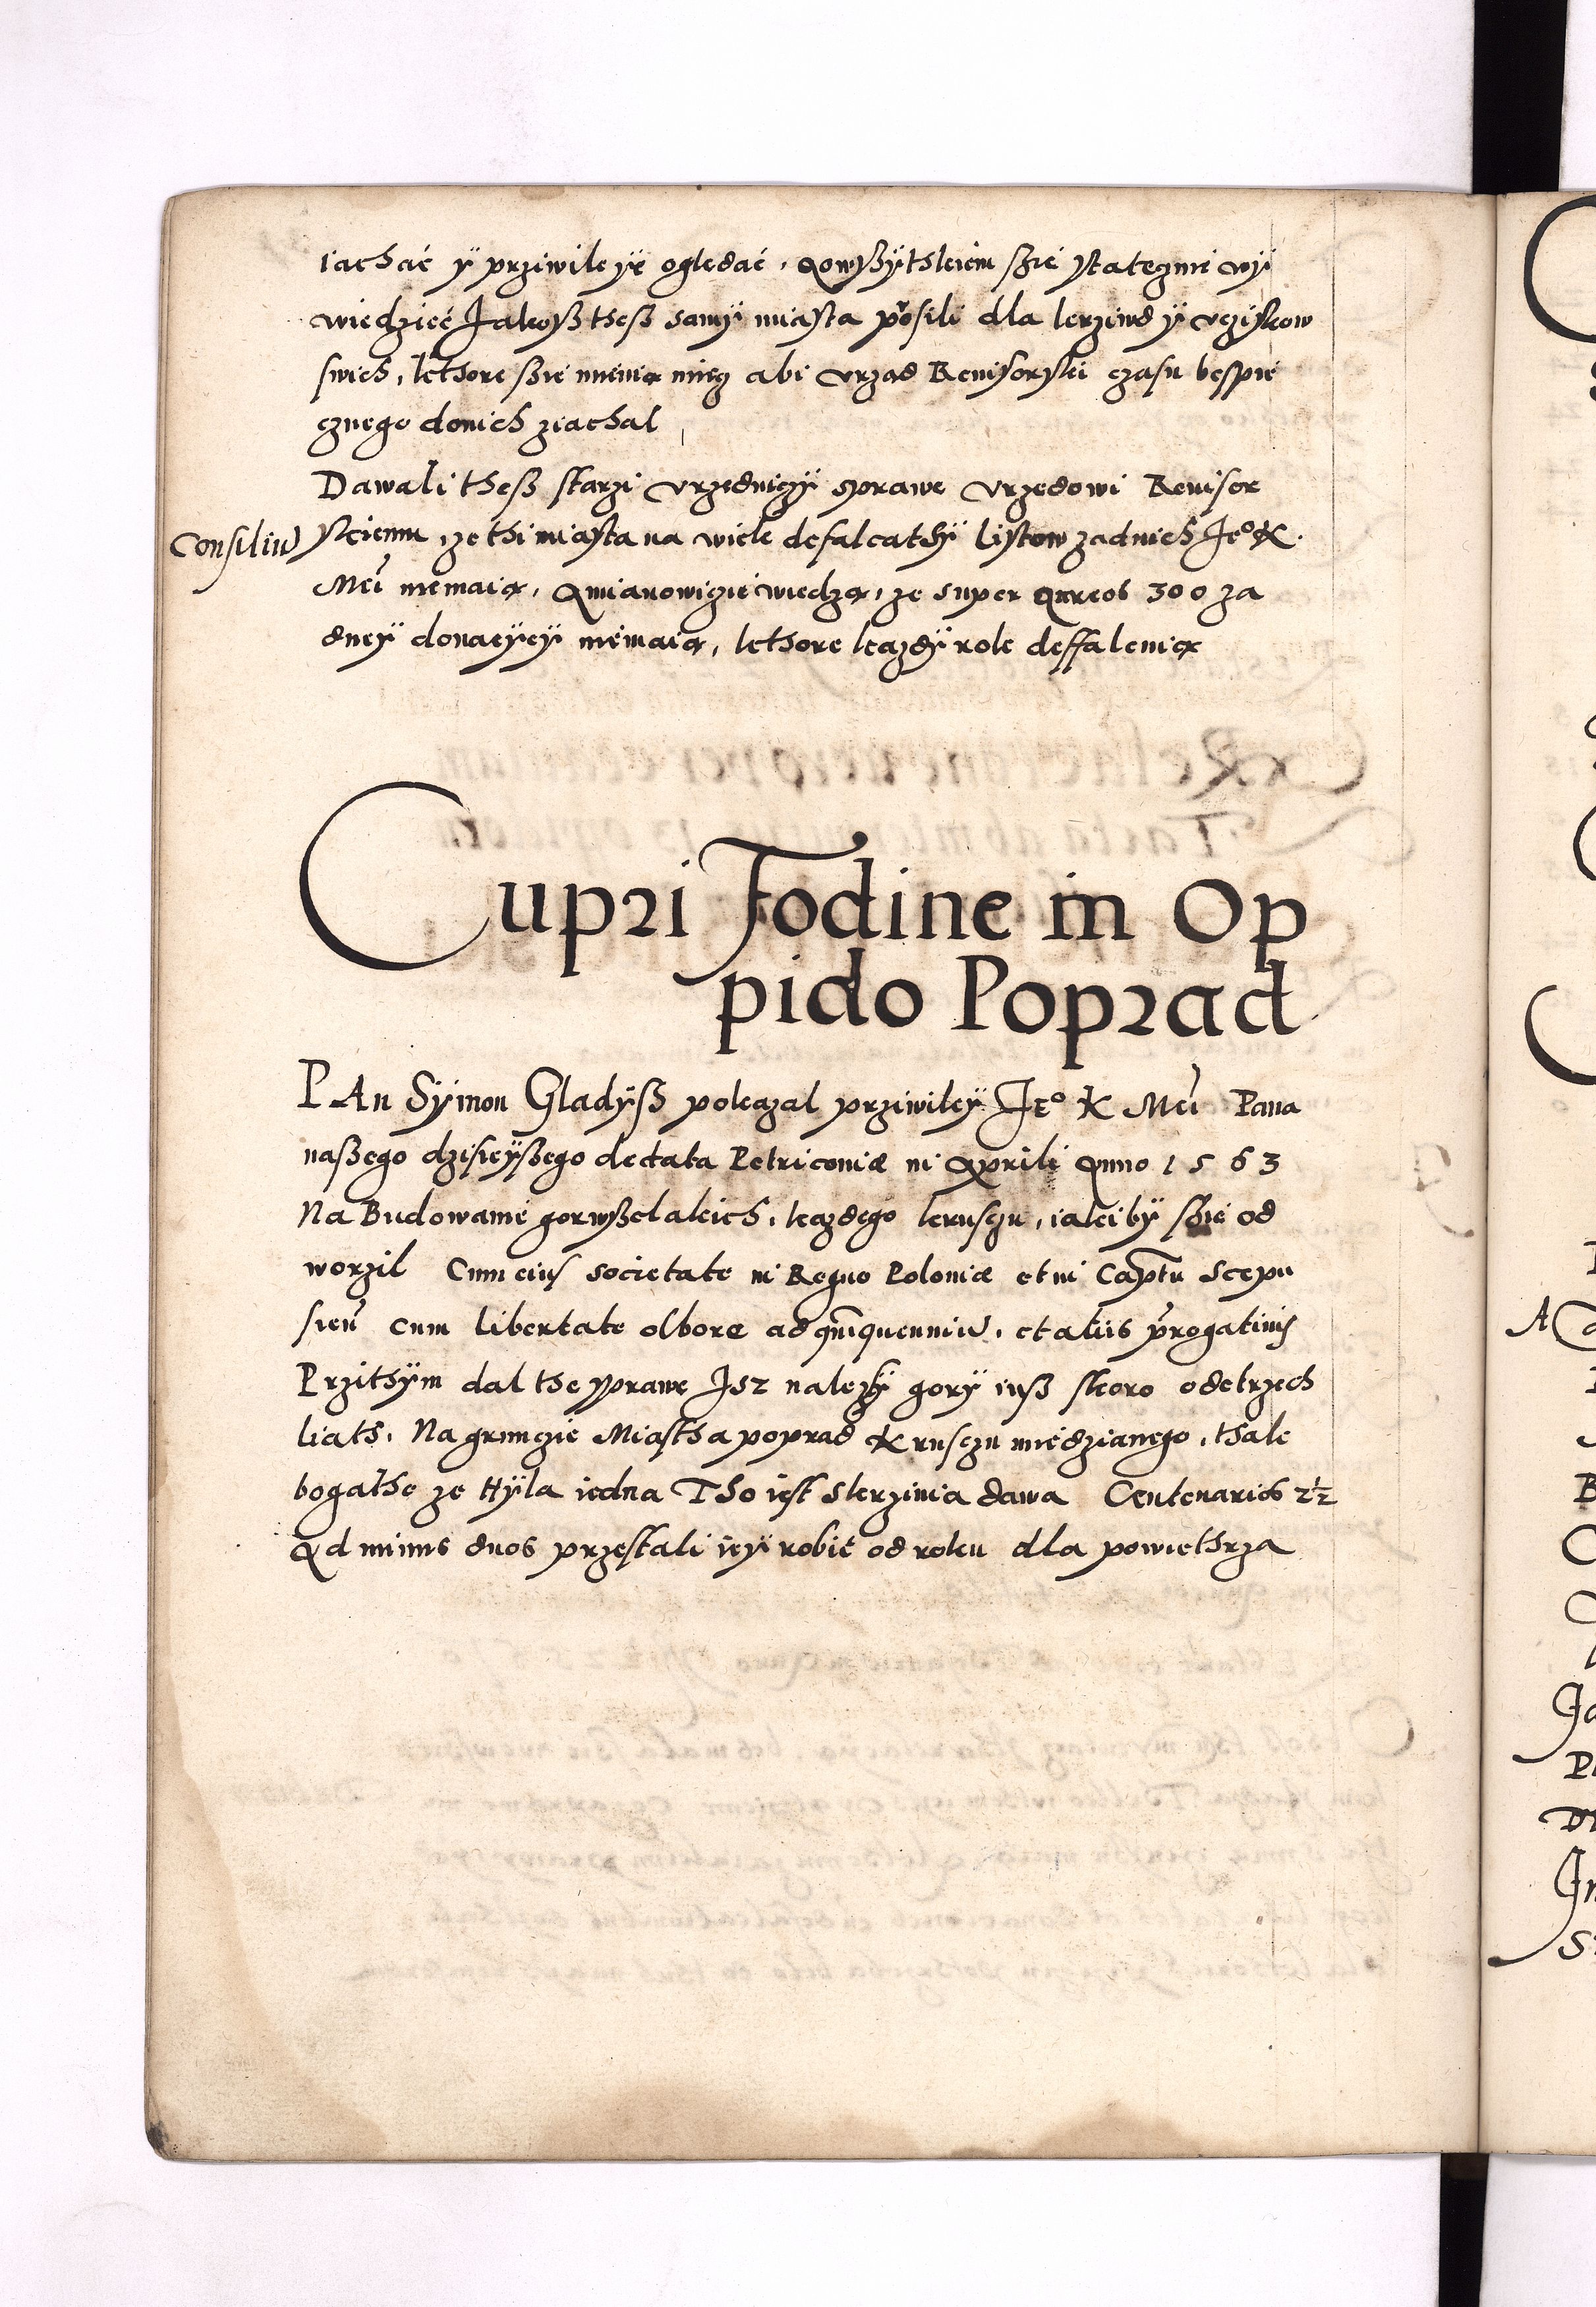 iachać y prziwileye ogledać, A owßÿthkiem ßie statezmi wÿ
wiedzieć Jakoß theß samÿ miasta prosili dla krziwd ÿ vcziskow
swich, kthore ßie mienią miecz abi vrzad Reuisorski czasu bespie
cznego donich ziachal
Dawali theß starzi vrzednicÿ sprawe vrzedowi Reuisor
Consiliu skiemu ize thi miasta na wiele defalcathÿ listow zadnich Jeº K.
Mci niemaią, A mianowiczie wiedzą, ze super Aureos 300 za
dneÿ donacÿcÿ niemaią, kthore kazdÿ rok deffalcuią
Cupri Fodine in Op
pido Poprad
PAn Sÿmon Gladÿß pokazal prziwileÿ Jeº K Mci Pana
naßego dzisieÿßego de data Petricouiæ in Aprili Anno 1563
Na Budowanie gor wßelakich, kazdego kruszu, iakibÿ ßie od
worzil Cum eius societate in Regno Poloniæ et in Captu Scepu
sien cum libertate olbore ad quinquenniu, et aliis prerogatiuis
Przithÿm dal the sprawe Isz nalezlÿ gorÿ iuß skoro odtrzech
liath, Na grunczie Miastha poprad Kruszu miedzianego, thak
bogathe ze Hÿla iedna Tho iest skrzinia dawa Centenarios 2½
Ad minus duos przestali ieÿ robić od roku dla powiethrza